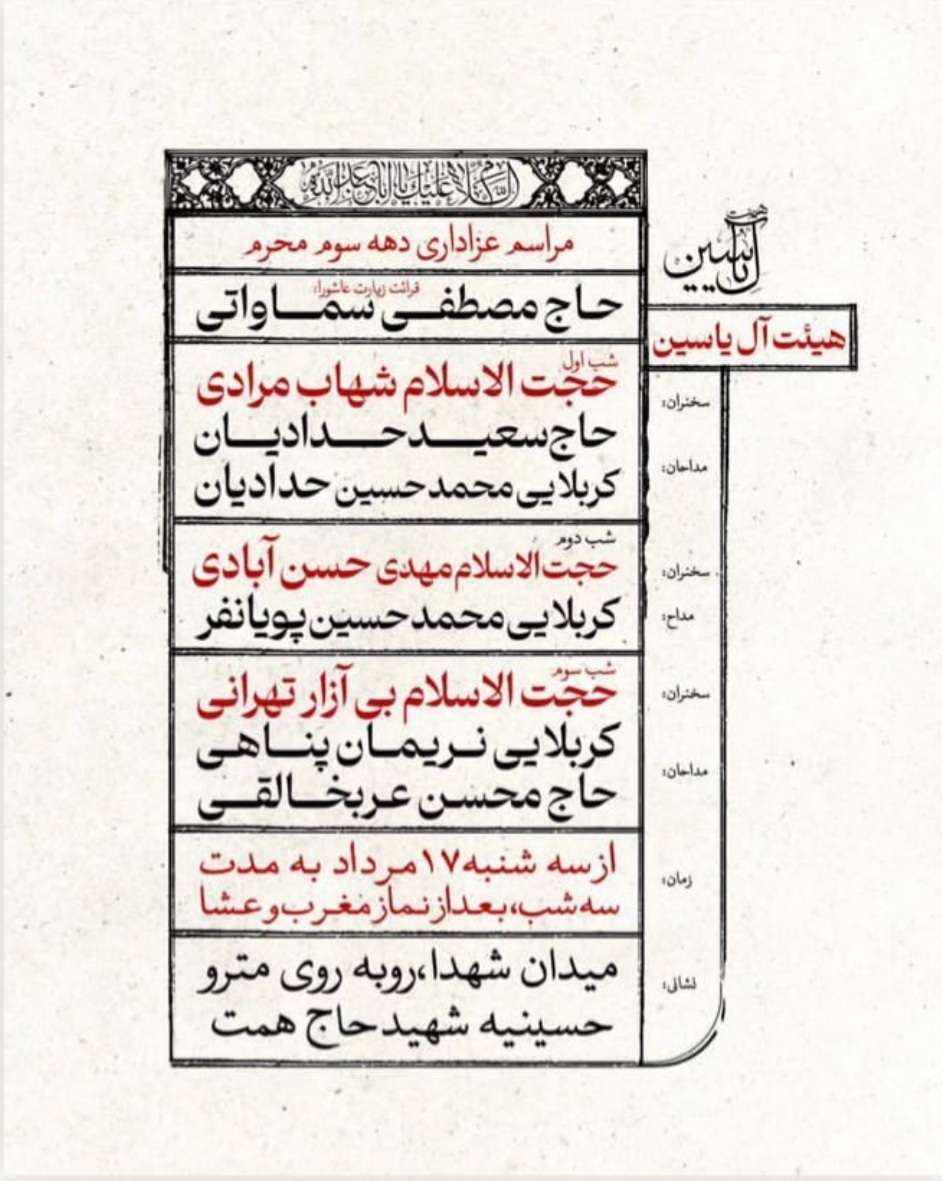 السلام علیک یا اباعبدالله
مراسم عزاداری دهه سوم محرم
هیئت
آل یاسین
هیئت آل یاسین
قرائت زیارت عاشورا:
حاج مصطفی سماواتی
شب اول
سخنران:
حجت الاسلام شهاب مرادی
مداحان:
حاج سعید حدادیان
کربلایی محمدحسین حدادیان
شب دوم
سخنران:
حجت الاسلام مهدی حسن آبادی
مداح:
کربلایی محمدحسین پویانفر
شب سوم
سخنران:
حجت الاسلام بی آزار تهرانی
مداحان:
کربلایی نریمان پناهی
حاج محسن عربخالقی
زمان:
از سه شنبه ۱۷ مرداد به مدت
سه شب، بعد از نماز مغرب و عشا
نشانی:
میدان شهدا، روبه روی مترو
حسینیه شهید حاج همت